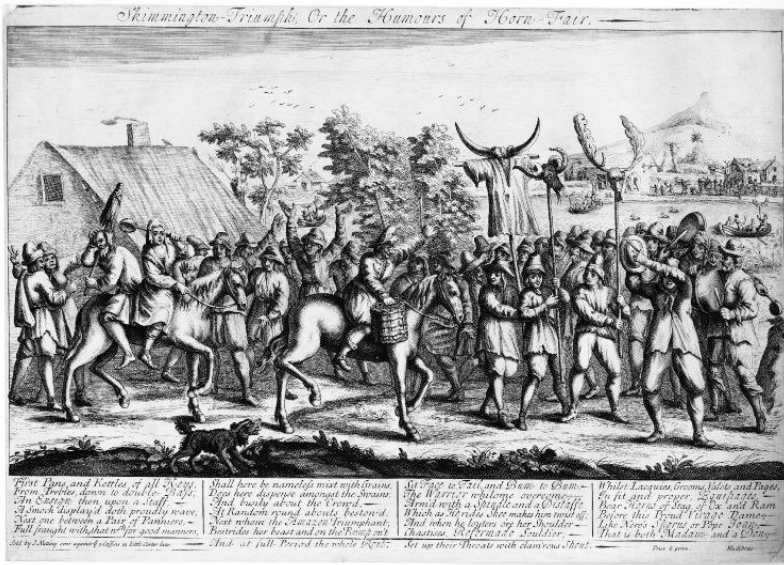 Skimmington-Triumphs, Or the Humours of Horn-Fair.
First Pans and Kettles of all Keys,
From Trebles down to double-Bass;
An Ensign then upon a Staff,
A Smock display'd doth proudly wave,
Next one between a Pair of Panniers,
Full fraught with that wch for good manners,
Shall here be nameless mixt with Grains,
Does here dispense amongst the Swains;
And busily about the Crowd
At Random round about bestow'd.
Next whom the Amazon Triumphant,
Bestrides her beast and on the Rump on't
Sit Face to Tail, and Bum to Bum
The Warrior whilome overcome,
Arm'd with a Spindle and a Distaffe
Which as He rides She makes him twist off;
And when he loyters ore her Shoulder
Chastises Reformado Souldier;
Whilst Lacquies, Grooms, Valets and Pages,
In fit and proper Equipages
Bear Horns of Stag, of Ox and Ram
Before this Proud Virago Dame
Like Nero's Sporus or Pope Joan,
That is both Madam and a Don,
And at full Period the whole Rout
Set up their Throats with clam'rous Shout.
Sold by
over against
Coffee in Little
Price 6 pence.
Hudibras